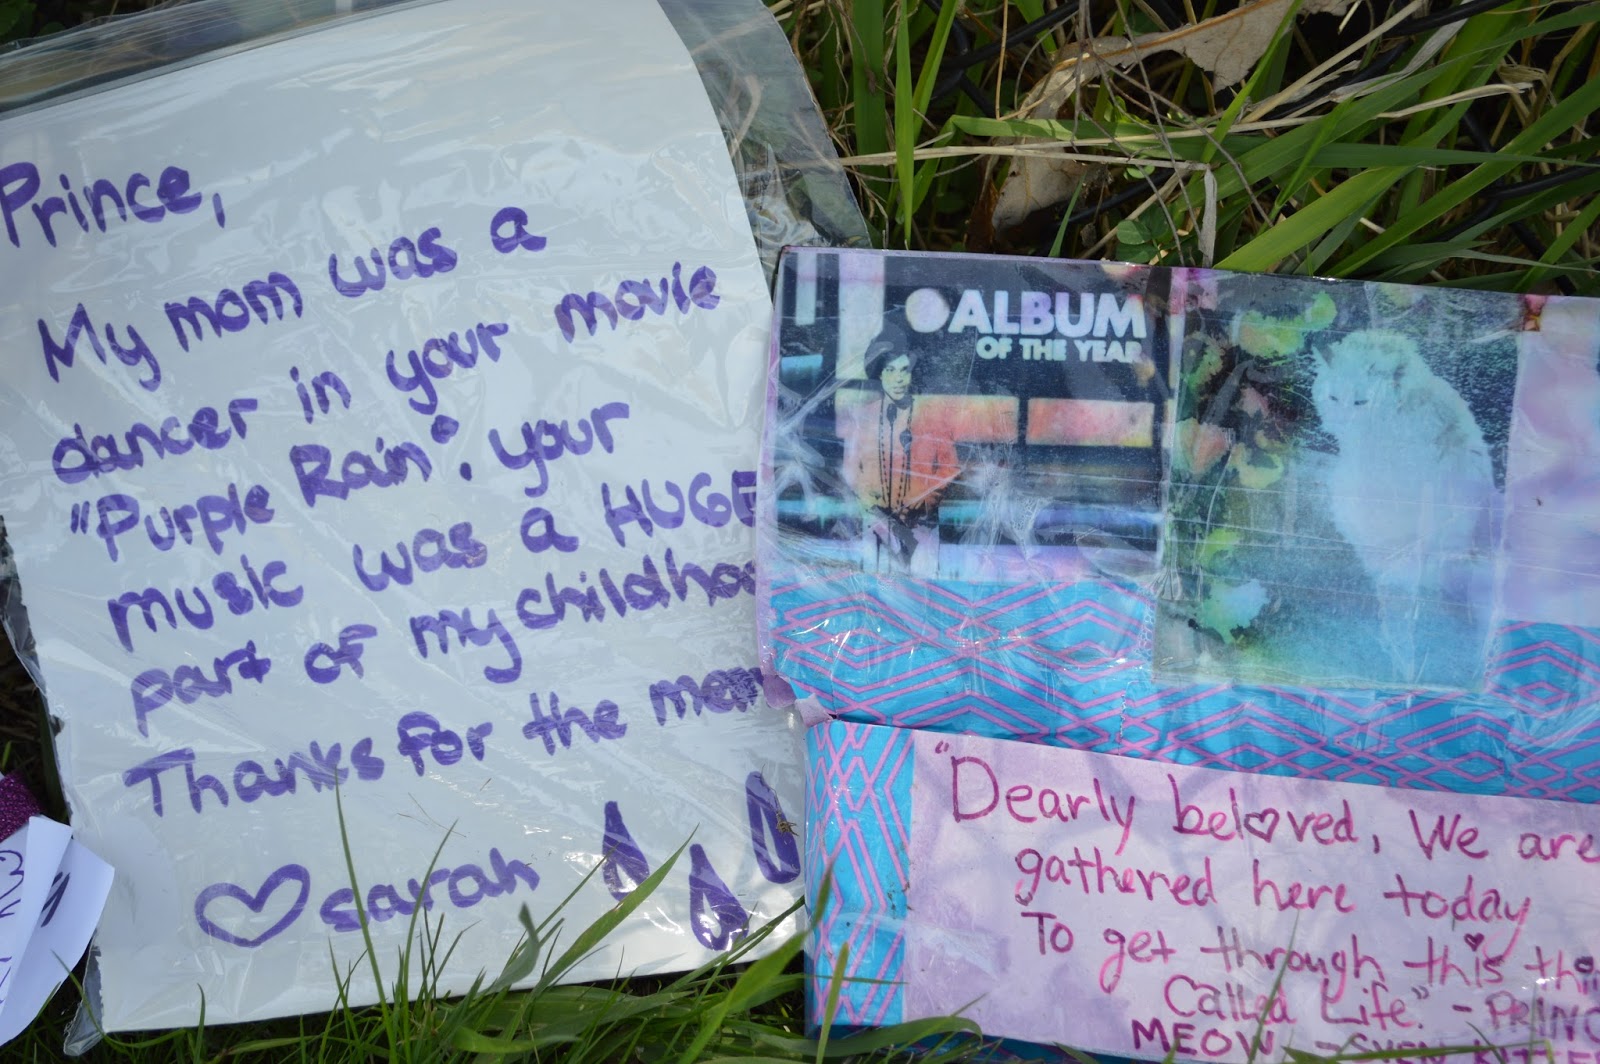 Prince,
My mom was a
dancer in your movie
"Purple Rain". your
music was a HUGE
part of my childhoo
Thanks for the mem
sarah
ALBUM
OF THE YEAR
"Dearly beloved, We are
gathered here today
To get through this thi
Called Life." - PRINC
MEOW -